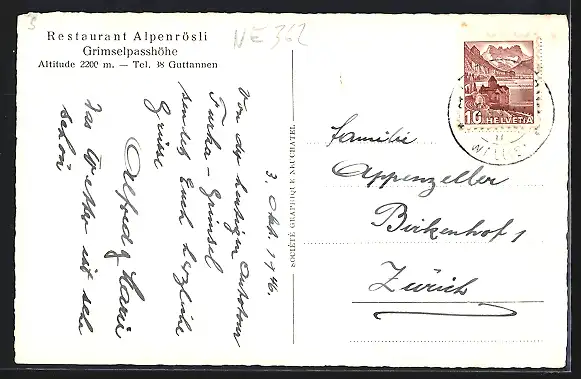 S
NE 362
Restaurant Alpenrösli
Grimselpasshöhe
Altitude 2200 m. — Tel. 38 Guttannen
3. Okt. 1946.
Von der heutigen Autotour
Furka-Grimsel
sendet Euch herzliche
Grüsse
Alfred & Mari
Das Wetter ist sehr
schön
SOCIÉTÉ GRAPHIQUE NEUCHATEL
10 HELVETIA
Familie
Appenzeller
Birkenhof 1
Zürich